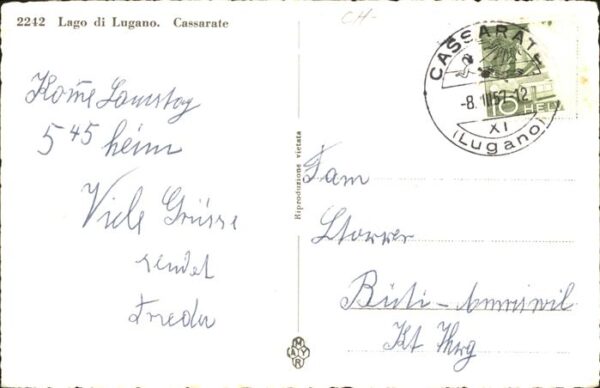 2242 Lago di Lugano. Cassarate
CH-
Kome Samstag
5 45 heim
Viele Grüsse
sendet
Frieda
Riproduzione vietata
MAYR
CASSARATE
-8.VIII.52-12
XI
(Lugano)
10 HELVETIA
Fam
Storrer
Büti-Amriswil
Kt Thrg